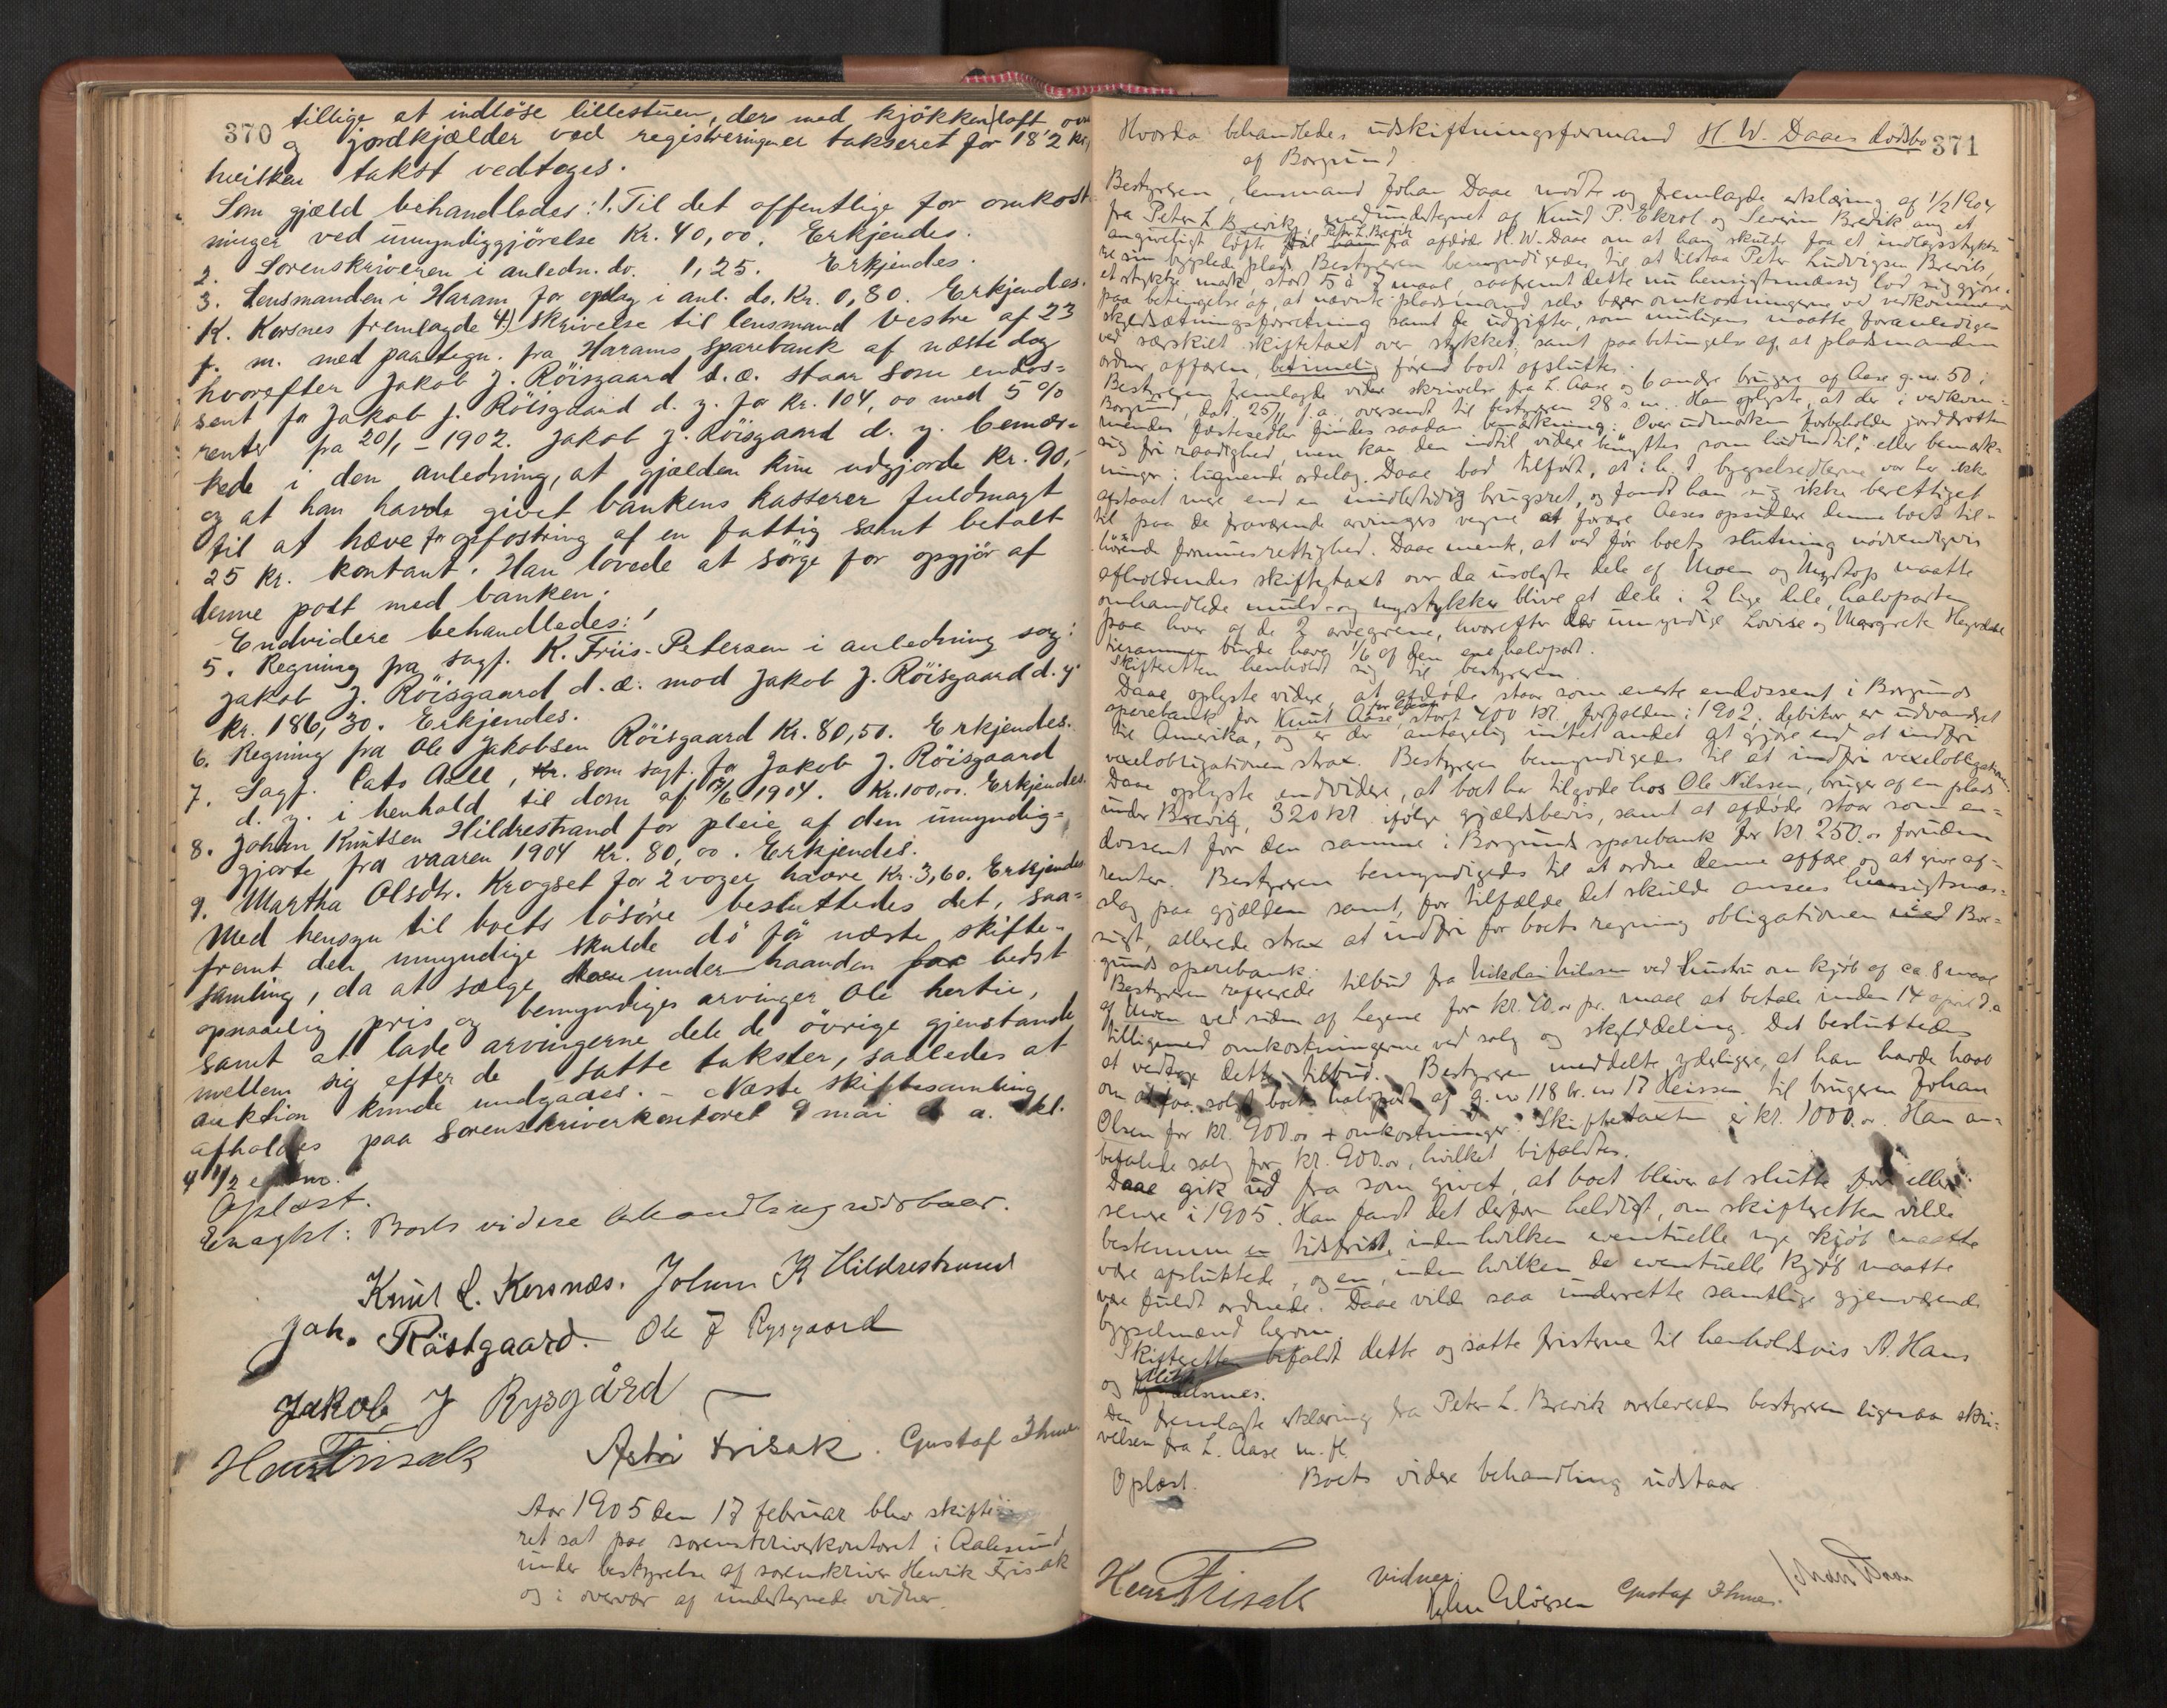 370
tillige at indlöse lillestuen, ders med kjökken loft over
og jordkjælder ved registreringen er takseret for 182 kr,
hvilken takst vedtoges.
Som gjæld behandlades: 1. Til det offentlige for omkost-
ninger ved umyndiggjörelse Kr. 40,00. Erkjendes.
2. Sorenskriveren i anledn. do. 1,25. Erkjendes.
3. Lensmanden i Haram for oplag i anl. do. Kr. 0,80. Erkjendes.
K. Korsnes fremlagde 4) skrivelse til lensmand Vestre af 23
f. m. med paategn. fra Harams sparebank af næste dag
hvorefter Jakob J. Röisgaard d. æ. staar som endos=
sent for Jakob J. Röisgaard d. y. for Kr. 104,00 med 5 %
renter fra 20/1 - 1902. Jakob J. Röisgaard d. y. bemær-
kede i den anledning, at gjælden kun udgjorde Kr. 90,-
og at han havde givet bankens kasserer fuldmagt
til at hæve for opfostring af en fattig samt betalt
25 kr. kontant. Han lovede at sörge for opgjör af
denne post med banken.
Endvidere behandledes:
5. Regning fra sagf. K. Friis-Petersen i anledning sag:
Jakob J. Röisgaard d. æ. mod Jakob J. Röisgaard d. y.
Kr. 186,30. Erkjendes.
6. Regning fra Ole Jakobsen Röisgaard Kr. 80,50. Erkjendes.
7. Sagf. Cato Aall, Kr. som sagf. for Jakob J. Röisgaard
d. y. i henhold til dom af /6 1904. Kr. 100,00. Erkjendes.
8. Johan Knutsen Hildrestrand for pleie af den umyndig=
gjorte fra vaaren 1904 Kr. 80,00. Erkjendes.
9. Martha Olsdtr. Krogset for 2 voger havre Kr. 3,60. Erkjendes
Med hensyn til boets lösöre besluttedes det, saa=
fremt den umyndige skulde dö för næste skifte-
samling, da at sælge under haanden for bedst
opnaaelig pris og bemyndiges arvinger Ole hertil,
samt at lade arvingerne dele de övrige gjenstande
mellem sig efter de satte takster, saaledes at
auktion kunde undgaaes. - Næste skiftesamling
afholdes paa sorenskriverkontoret 9 mai d. a. kl.
4 1/2 efterm.
Oplæst.
Eragtet: Boets videre behandling udstaar.
Knut L. Korsnæs. Johan K Hildrestrand
Jak. Röstgaard. Ole J Rysgaard
Jakob J Rysgård
Henr Frisak Astri Frisak. Gustaf Ihme
Aar 1905 den 17 februar blev skifte-
ret sat paa sorenskriverkontoret i Aalesund
under bestyrelse af sorenskriver Henrik Frisak
og i overvær af undertegnede vidner.
371
Hvorda behandledes udskiftningsformand H. W. Daaes dödsbo
af Borgund.
Bestyreren, lensmand Johan Daae mödte og fremlagde erklæring af 1/2 1904
fra Peter L Brevik, medundertegnet af Knud P. Ekrol og Severin Brevik ang. et
angiveligt löfte til Peter L. Brevik fra afdöde H. W. Daae om at han skulde faa et indlagsstykke
til sin bygslede plads. Bestyreren bemyndigedes til at tilstaa Peter Ludvigsen Brevik
et stykke mark, stort 5 à 7 maal, saafremt dette nu hensigtsmæssig lod sig gjöre.
paa betingelse af, at nævnte pladsmand selv bærer omkostningerne ved vedkommende
skyldsætningsforretning samt de udgifter, som muligens maatte foranlediges
ved særskilt skiftetaxt over stykket, samt paa betingelse af, at pladsmanden
ordner affæren, betimelig förend boet afsluttes.
Bestyreren fremlagde videre skrivelse fra L. Aase og 6 andre brugere af Aase g. nr. 50 i
Borgund, dat. 25/11 f. a. oversendt til bestyreren 28 s. m. Han oplyste, at der i vedkom-
mendes fæstesedler findes saadan bemærkning: Over udmarken forbeholder jorddrotten
sig fri raadighed, men kan den indtil videre benyttes som hidindtil, eller bemærk-
ninger i lignende ordelag. Daae bad tilfört, at i h. t. bygselsedlerne var her ikke
afstaaet mere end en midlertidig brugsret, og fandt han sig ikke berettiget
til paa de fraværende arvingers vegne at forære Aases opsiddere denne boet til-
hörende formuesrettighed. Daae mente, at ved för boets slutning nödvendigvis
afholdendes skiftetaxt over de usolgte dele af Moen og Myrstop maatte
omhandlede muld- og myrstykker blive at dele i 2 lige dele, halvparten
paa hver af de 2 arvegrene, hvorefter de umyndige Lovise og Margrete
tilsammen burde have 1/6 af den ene halvpart.
Skifteretten henholdt sig til bestyreren.
Daae oplyste videre, at afdöde staar som eneste endossent i Borgunds
sparebank for Knut Aase, stort 400 kr. forfalden i 1902. debitor er udvandret
til Amerika, og er der antagelig intet andet at gjöre end at indfri
vexelobligationen strax. Bestyreren bemyndigedes til at indfri vexelobligationen.
Daae oplyste endvidere, at boet har tilgode hos Ole Nilssen, bruger af en plads
under Brevig, 320 kr. ifölge gjældsbevis, samt at afdöde staar som en=
dossent for den samme i Borgunds sparebank for kr 250.00 foruden
renter. Bestyreren bemyndigedes til at ordne denne affære og at give af-
slag paa gjælden samt, for tilfælde det skulde ansees hensigtsmæs-
sigt, allerede strax at indfri for boets regning obligationen med Bor=
gunds sparebank.
Bestyreren refererede tilbud fra Nikolai Nilssen ved hustru om kjöb af ca 8 maal
af Moen ved siden af Legene for kr. 40.00 pr. maal at betale inden 14 april d. a
tilligemed omkostningerne ved salg og skylddeling. Det besluttedes
at vedtage dette tilbud. Bestyreren meddelte yderligere, at han havde haab
om at faa solgt boets halvpart af g. nr 118 br. nr 17 Heissen til brugeren Johan
Olsen for kr. 900.00 + omkostninger. Skiftetaxten er kr. 1000.00. Han an-
befalede salg for kr. 900.00, hvilket bifaldtes.
Daae gik ud fra som givet, at boet bliver at slutte för eller
senere i 1905. Han fandt det derfor heldigt, om skifteretten vilde
bestemme en tidsfrist, inden hvilken eventuelle nye kjöb maatte
være afsluttede, og en, inden hvilken de eventuelle kjöb maatte
være fuldt ordnede. Daae vilde saa underrette samtlige gjenværende
bygselmænd herom.
Skifteretten bifaldt dette og satte fristerne til henholdsvis St. Hans
og Mikkelsmes.
Den fremlagte erklæring fra Peter L. Brevik overleveredes bestyreren ligesaa skri-
velsen fra L. Aase m. fl.
Oplæst. Boets videre behandling udstaar
Henr Frisak vidner: Gustaf Ihme. Johan Daae